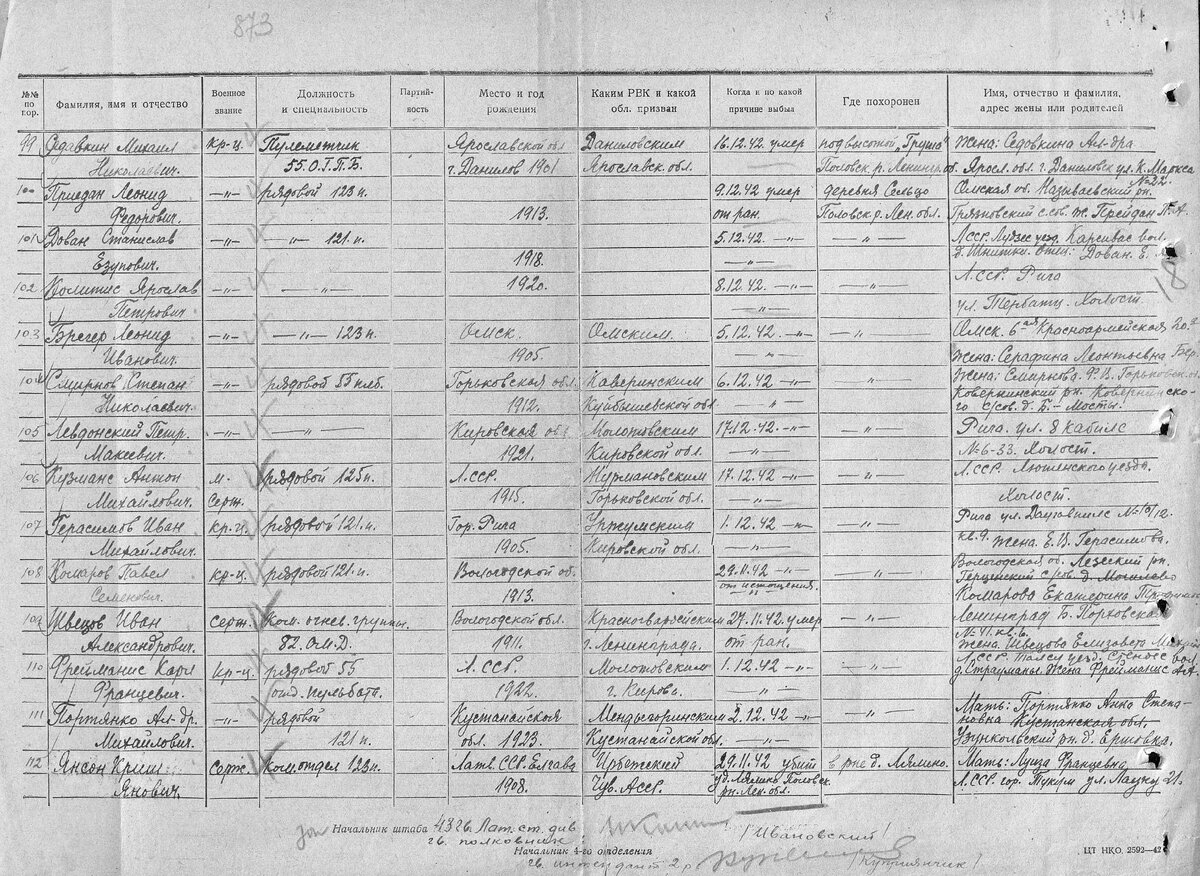 873
№№ по пор. Фамилия, имя и отчество Военное звание Должность и специальность Партийность Место и год рождения Каким РВК и какой обл. призван Когда и по какой причине выбыл Где похоронен Имя, отчество и фамилия, адрес жены или родителей
99 Седавкин Михаил кр-ц. Пулеметчик Ярославской обл Даниловским 16.12.42 умер под высотой „Груша" Жена: Седовкина Ал-дра
Николаевич. 55 О.Г.П.Б. г. Данилов 1901 Ярославск. обл. Половск. р. Ленингр об. Яросл. обл. г. Даниловск ул. К. Маркса
№ 22.
100 Приедан Леонид —„— рядовой 123 п. 9.12.42 умер деревня Сельцо Омская об. Называевский рн.
Федорович. 1913. от ран. Половск р. Лен. обл. с. сов. ж. Прейдан П. А.
101 Дован Станислав —„— —„— 121 п. 5.12.42 —„— —„— Л.ССР. Лудзес уезд. Карсивас вол.
Езупович. 1918. —„— д. Шнитки. Отец: Дован. Е.
102 Ярослав —„— —„— 1920. 8.12.42 —„— —„— Л.ССР. Рига
Петрович ул. Тербатц. Холост
103 Брегер Леонид —„— —„— 123 п. Омск. Омским. 5.12.42 —„— —„— Омск. 6-ая Красноармейская 20.3
Иванович. 1905. —„— Жена: Серафина Леонтьевна Бер
104 Смирнов Степан —„— рядовой 55 плб. Горьковская обл. Каверинским 6.12.42 —„— —„— Жена: Смирнова. Ф. В. Горьковск. о.
Николаевич. 1912. Куйбышевской обл Ковернинский рн. Ковернинско-
го с/сов. д. Б. – Мосты.
105 Левдонский Петр. —„— —„— Кировская об. Молотовским 17.12.42 —„— —„— Рига. ул. 8 кабилс
Макеевич. 1921. Кировской обл. —„— № 6-33. Холост.
106 Кузманс Антон м. рядовой 125 п. Л.ССР. Нурмановским 17.12.42 —„— —„— Л.ССР. уезда.
Михайлович. серж. 1915. Горьковской обл. —„— Холост.
107 Герасимов Иван кр-ц. рядовой 121 п. Гор. Рига Уржумским 1.12.42 —„— —„— Рига ул. Даугавпилс № 10/12.
Михайлович. 1905. Кировской обл. —„— кв. 9. Жена. Е. В. Герасимова.
108 Комаров Павел кр-ц. рядовой 121 п. Вологодской об. 29.11.42 —„— —„— Вологодская об. Лезский рн.
Семенович. 1913. от истощения. с/сов. д. Могилево
Комарова Екатерина
109 Швецов Иван серж. Ком. огнев. группы. Вологодской обл. Красногвардейским 27.11.42 умер —„— Ленинград Б. Порковская
Александрович. 82. О.м.Д. 1911. г. Ленинграда. от ран. № 41. кв. 6.
Жена: Швецова Елизавета
110 Фрейманис Карл кр-ц. рядовой 55 Л. ССР. Молотовским 1.12.42 —„— —„— Л.ССР. Талси уезд. Стендес вол
Францевич. отд. пульбата. 1922. г. Кирова. —„— д. Страуманы. Жена Фрейманис А.А.
111 Портянко Ал-др. —„— рядовой Кустанайская Мендыгоринским 2.12.42 —„— —„— Мать: Портянко Анна Степа-
Михайлович. 121 п. обл. 1923 Кустанайской обл. —„— новка Кустанская обл.
Узункольский рн. д. Ершовка.
112 Янсон Криш Серж. Ком. отдел 123 п. Латв. ССР. Елгава Ирбежский 29.11.42 убит в рне д. Лялино. Мать: Луиза Францевна
Янович. 1908. Чув. АССР. у д. Лялино Половск. рн. Лен. обл. Л.ССР. гор. Тукум ул. Пацку 21.
18
Начальник штаба 43 гв. Лат. ст. див /Ивановский/
гв. полковник:
Начальник 4-го отделения
гв. интендант 2 р /Куприянчик/
ЦТ НКО. 2592—42